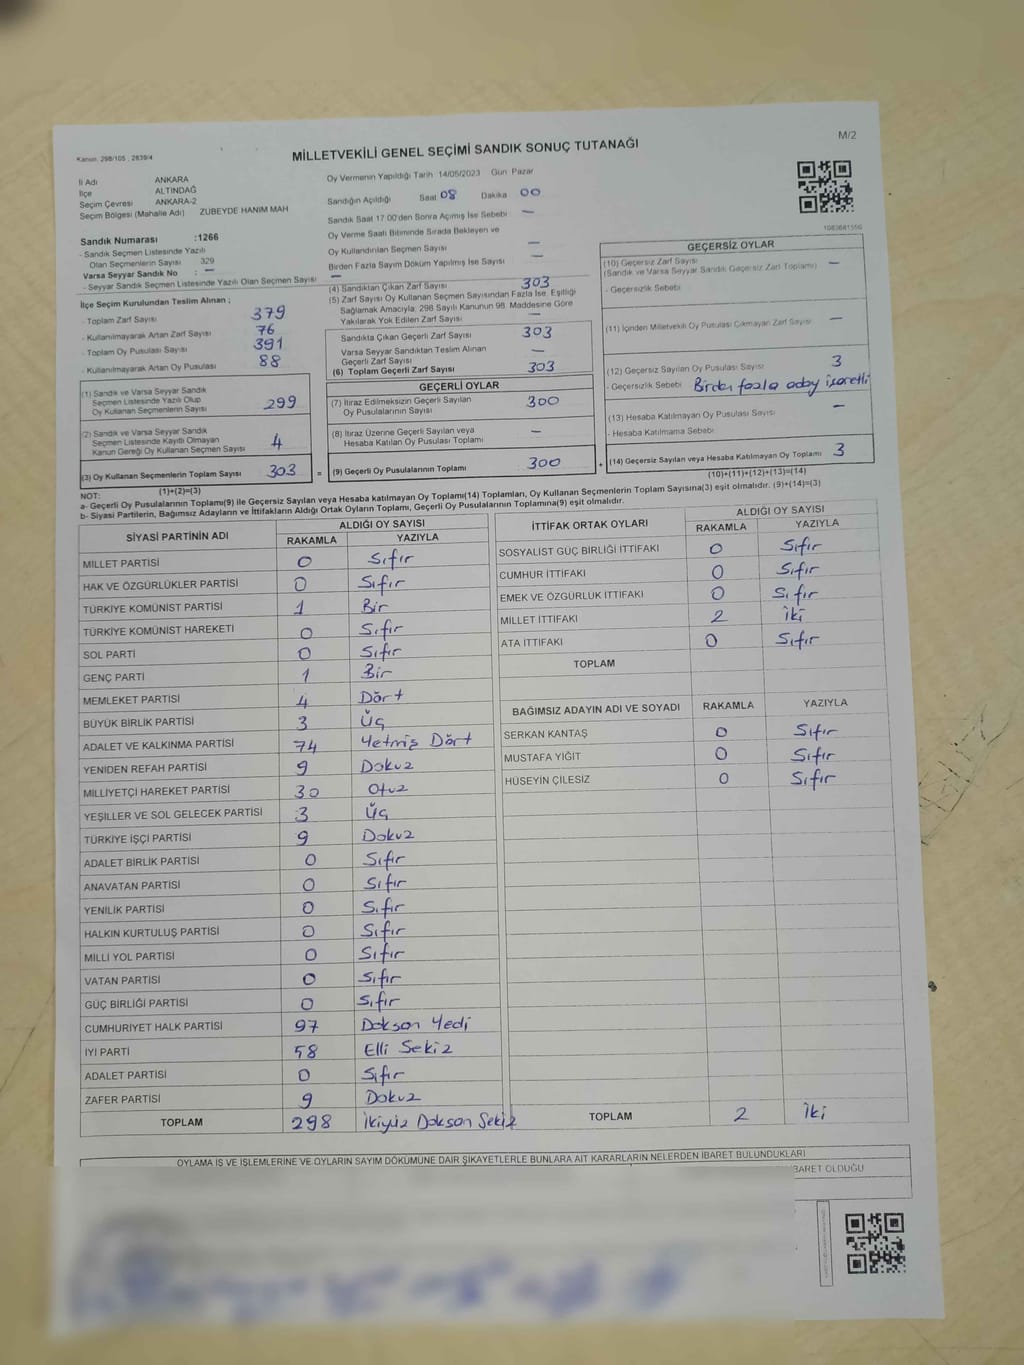 M/2
Kanun. 298/105 , 2839/4
MİLLETVEKİLİ GENEL SEÇİMİ SANDIK SONUÇ TUTANAĞI
İl Adı ANKARA
İlçe ALTINDAĞ
Seçim Çevresi ANKARA-2
Seçim Bölgesi (Mahalle Adı) ZUBEYDE HANIM MAH
Sandık Numarası :1266
- Sandık Seçmen Listesinde Yazılı
Olan Seçmenlerin Sayısı 329
Varsa Seyyar Sandık No : –
- Seyyar Sandık Seçmen Listesinde Yazılı Olan Seçmen Sayısı –
İlçe Seçim Kurulundan Teslim Alınan ;
- Toplam Zarf Sayısı 379
- Kullanılmayarak Artan Zarf Sayısı 76
- Toplam Oy Pusulası Sayısı 391
- Kullanılmayarak Artan Oy Pusulası 88
(1) Sandık ve Varsa Seyyar Sandık
Seçmen Listesinde Yazılı Olup
Oy Kullanan Seçmenlerin Sayısı 299
(2) Sandık ve Varsa Seyyar Sandık
Seçmen Listesinde Kayıtlı Olmayan
Kanun Gereği Oy Kullanan Seçmen Sayısı 4
(3) Oy Kullanan Seçmenlerin Toplam Sayısı 303 =
(1)+(2)=(3)
Oy Vermenin Yapıldığı Tarih 14/05/2023 Gün Pazar
Sandığın Açıldığı Saat 08 Dakika 00
Sandık Saat 17:00'den Sonra Açılmış İse Sebebi –
Oy Verme Saati Bitiminde Sırada Bekleyen ve
Oy Kullandırılan Seçmen Sayısı –
Birden Fazla Sayım Döküm Yapılmış İse Sayısı –
(4) Sandıktan Çıkan Zarf Sayısı 303
(5) Zarf Sayısı Oy Kullanan Seçmen Sayısından Fazla İse, Eşitliği
Sağlamak Amacıyla; 298 Sayılı Kanunun 98. Maddesine Göre
Yakılarak Yok Edilen Zarf Sayısı –
Sandıkta Çıkan Geçerli Zarf Sayısı 303
Varsa Seyyar Sandıktan Teslim Alınan
Geçerli Zarf Sayısı –
(6) Toplam Geçerli Zarf Sayısı 303
GEÇERLİ OYLAR
(7) İtiraz Edilmeksizin Geçerli Sayılan
Oy Pusulalarının Sayısı 300
(8) İtiraz Üzerine Geçerli Sayılan veya
Hesaba Katılan Oy Pusulası Toplamı –
(9) Geçerli Oy Pusulalarının Toplamı 300 +
1083641550
GEÇERSİZ OYLAR
(10) Geçersiz Zarf Sayısı –
(Sandık ve Varsa Seyyar Sandık Geçersiz Zarf Toplamı)
- Geçersizlik Sebebi
(11) İçinden Milletvekili Oy Pusulası Çıkmayan Zarf Sayısı –
(12) Geçersiz Sayılan Oy Pusulası Sayısı 3
- Geçersizlik Sebebi Birden fazla aday işaretli
(13) Hesaba Katılmayan Oy Pusulası Sayısı –
- Hesaba Katılmama Sebebi
(14) Geçersiz Sayılan veya Hesaba Katılmayan Oy Toplamı 3
(10)+(11)+(12)+(13)=(14)
NOT:
a- Geçerli Oy Pusulaları Toplamı(9) ile Geçersiz Sayılan veya Hesaba katılmayan Oy Toplamı(14) Toplamları, Oy Kullanan Seçmenlerin Toplam Sayısına(3) eşit olmalıdır. (9)+(14)=(3)
b- Siyasi Partilerin, Bağımsız Adayların ve İttifakların Aldığı Ortak Oyların Toplamı, Geçerli Oy Pusulalarının Toplamına(9) eşit olmalıdır.
SİYASİ PARTİNİN ADI ALDIĞI OY SAYISI
RAKAMLA YAZIYLA
MİLLET PARTİSİ 0 Sıfır
HAK VE ÖZGÜRLÜKLER PARTİSİ 0 Sıfır
TÜRKİYE KOMÜNİST PARTİSİ 1 Bir
TÜRKİYE KOMÜNİST HAREKETİ 0 Sıfır
SOL PARTİ 0 Sıfır
GENÇ PARTİ 1 Bir
MEMLEKET PARTİSİ 4 Dört
BÜYÜK BİRLİK PARTİSİ 3 Üç
ADALET VE KALKINMA PARTİSİ 74 Yetmiş Dört
YENİDEN REFAH PARTİSİ 9 Dokuz
MİLLİYETÇİ HAREKET PARTİSİ 30 Otuz
YEŞİLLER VE SOL GELECEK PARTİSİ 3 Üç
TÜRKİYE İŞÇİ PARTİSİ 9 Dokuz
ADALET BİRLİK PARTİSİ 0 Sıfır
ANAVATAN PARTİSİ 0 Sıfır
YENİLİK PARTİSİ 0 Sıfır
HALKIN KURTULUŞ PARTİSİ 0 Sıfır
MİLLİ YOL PARTİSİ 0 Sıfır
VATAN PARTİSİ 0 Sıfır
GÜÇ BİRLİĞİ PARTİSİ 0 Sıfır
CUMHURİYET HALK PARTİSİ 97 Doksan Yedi
İYİ PARTİ 58 Elli Sekiz
ADALET PARTİSİ 0 Sıfır
ZAFER PARTİSİ 9 Dokuz
TOPLAM 298 İkiyüz Doksan Sekiz
İTTİFAK ORTAK OYLARI ALDIĞI OY SAYISI
RAKAMLA YAZIYLA
SOSYALİST GÜÇ BİRLİĞİ İTTİFAKI 0 Sıfır
CUMHUR İTTİFAKI 0 Sıfır
EMEK VE ÖZGÜRLÜK İTTİFAKI 0 Sıfır
MİLLET İTTİFAKI 2 İki
ATA İTTİFAKI 0 Sıfır
TOPLAM
BAĞIMSIZ ADAYIN ADI VE SOYADI RAKAMLA YAZIYLA
SERKAN KANTAŞ 0 Sıfır
MUSTAFA YİĞİT 0 Sıfır
HÜSEYİN ÇİLESİZ 0 Sıfır
TOPLAM 2 İki
OYLAMA İŞ VE İŞLEMLERİNE VE OYLARIN SAYIM DÖKÜMÜNE DAİR ŞİKAYETLERLE BUNLARA AİT KARARLARIN NELERDEN İBARET BULUNDUKLARI
İBARET OLDUĞU